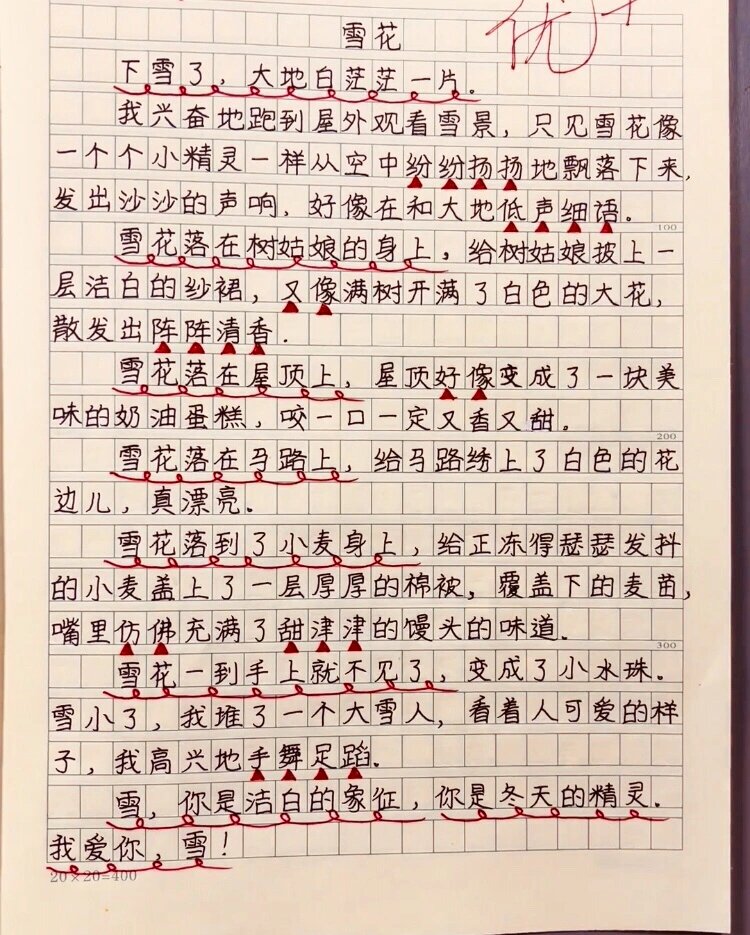 优+
雪花
下雪了，大地白茫茫一片。
我兴奋地跑到屋外观看雪景，只见雪花像
一个个小精灵一样从空中纷纷扬扬地飘落下来，
发出沙沙的声响，好像在和大地低声细语。
100
雪花落在树姑娘的身上，给树姑娘披上一
层洁白的纱裙，又像满树开满了白色的大花，
散发出阵阵清香．
雪花落在屋顶上，屋顶好像变成了一块美
味的奶油蛋糕，咬一口一定又香又甜。
200
雪花落在马路上，给马路绣上了白色的花
边儿，真漂亮．
雪花落到了小麦身上，给正冻得瑟瑟发抖
的小麦盖上了一层厚厚的棉被，覆盖下的麦苗，
嘴里仿佛充满了甜津津的馒头的味道．
300
雪花一到手上就不见了，变成了小水珠．
雪小了，我堆了一个大雪人，看着人可爱的样
子，我高兴地手舞足蹈．
雪，你是洁白的象征，你是冬天的精灵．
我爱你，雪！
20×20=400